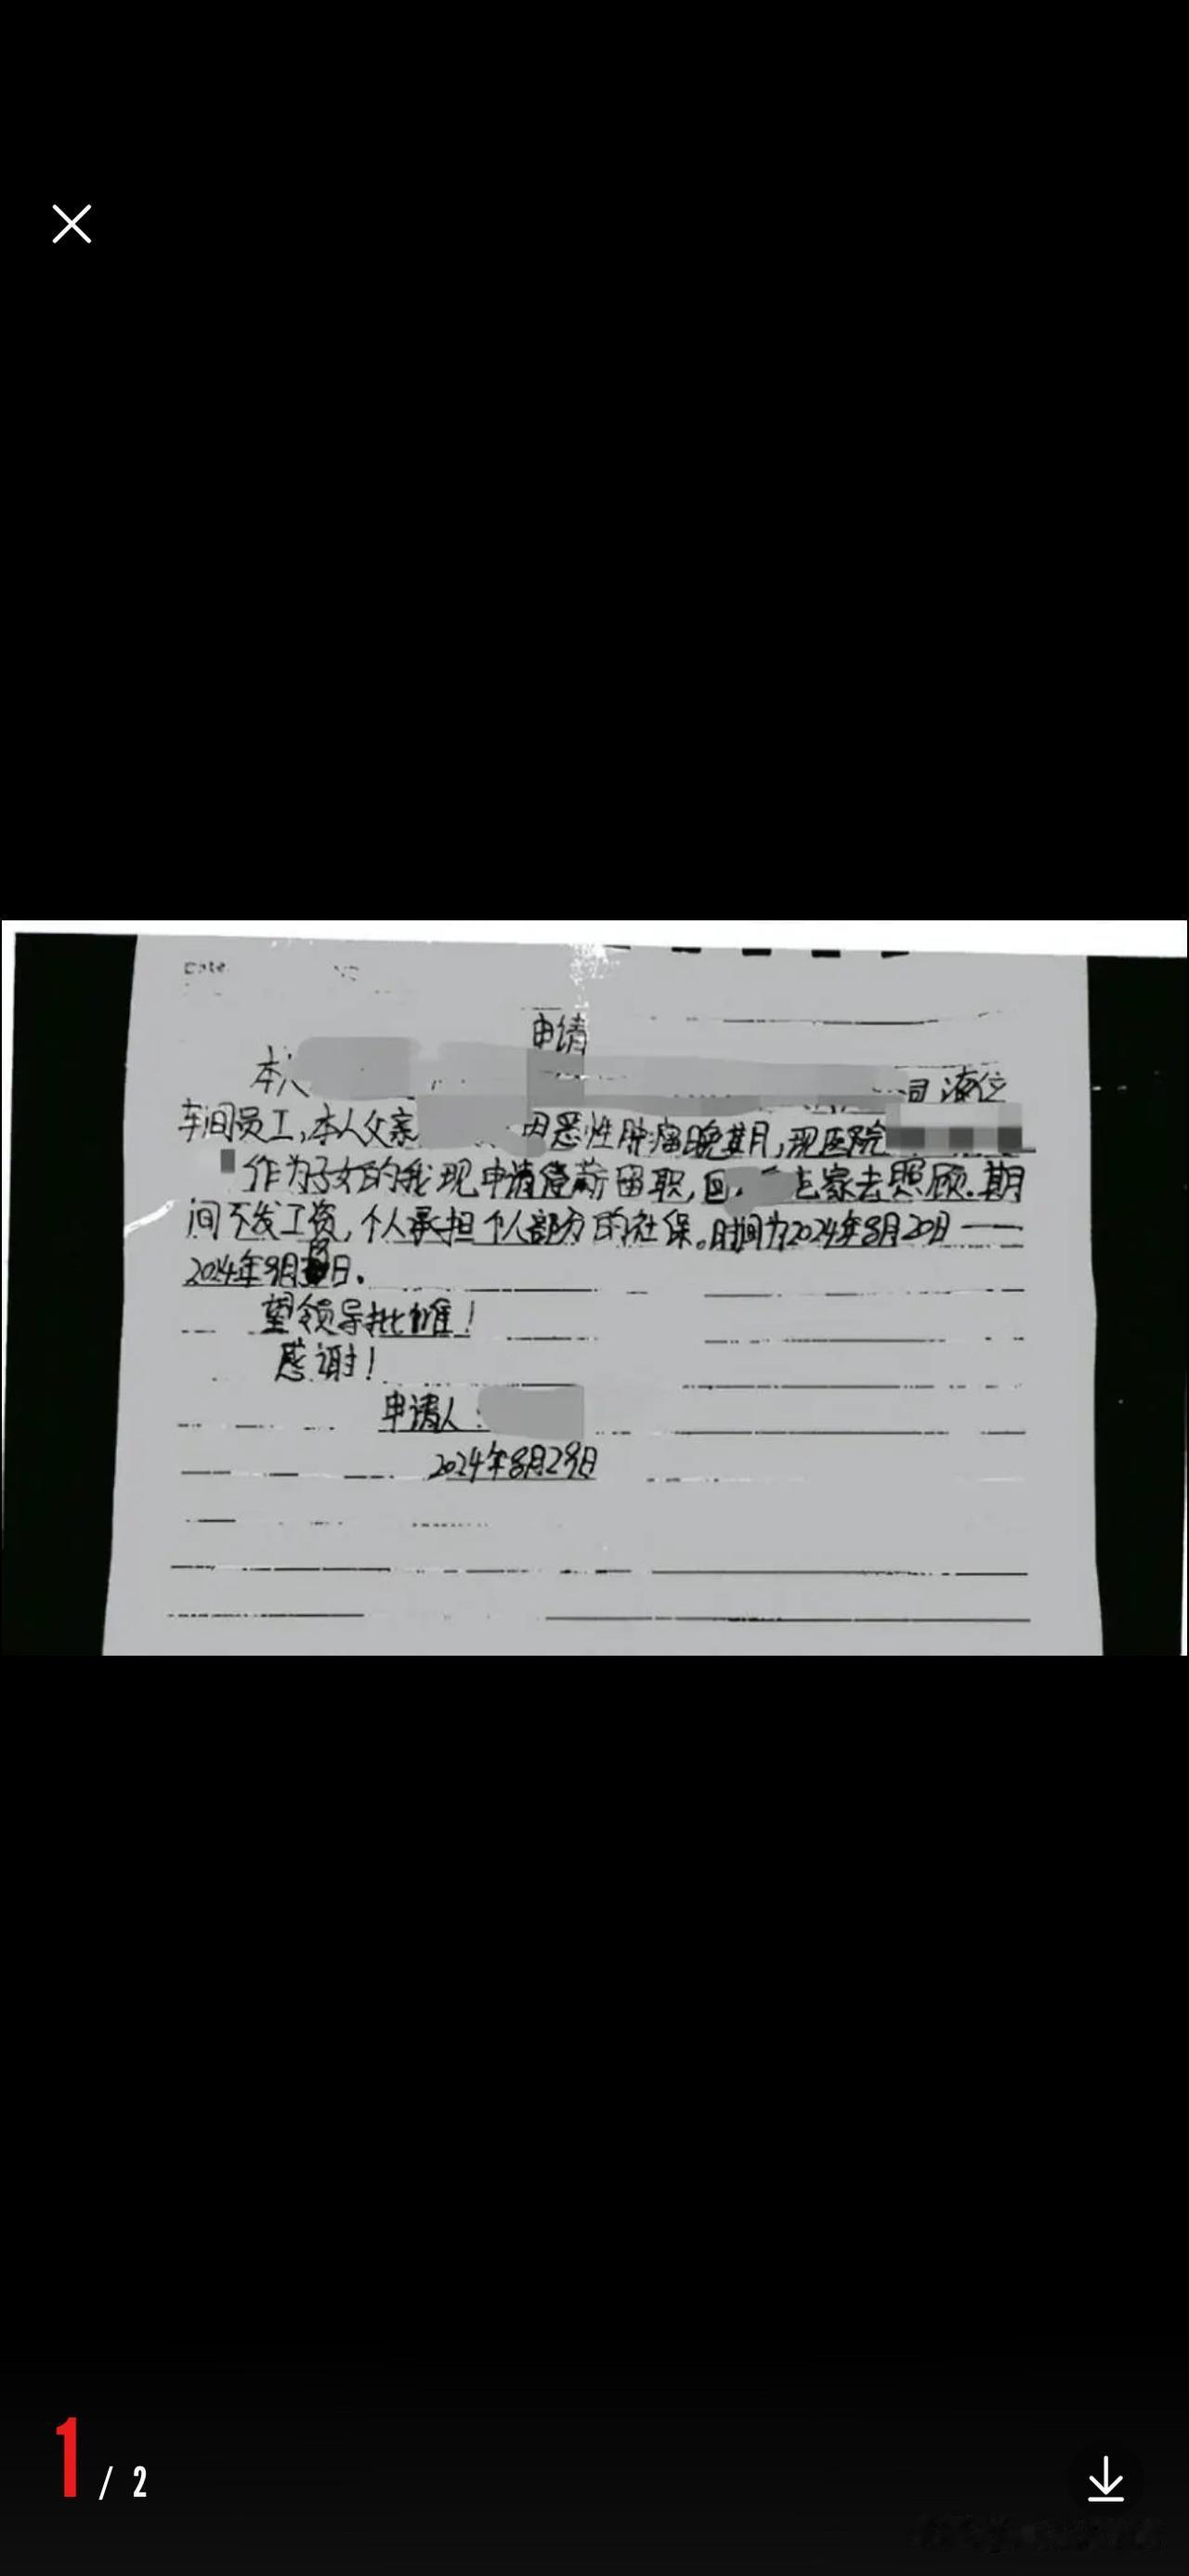 Date
申请
本人 司 液位
车间员工,本人父亲 因恶性肿瘤晚期,现医院
作为子女的我现申请停薪留职,回 老家去照顾.期
间不发工资,个人承担个人部分的社保。时间为2024年8月20日——
2024年9月 日.
望领导批准!
感谢!
申请人:
2024年8月29日
1 / 2